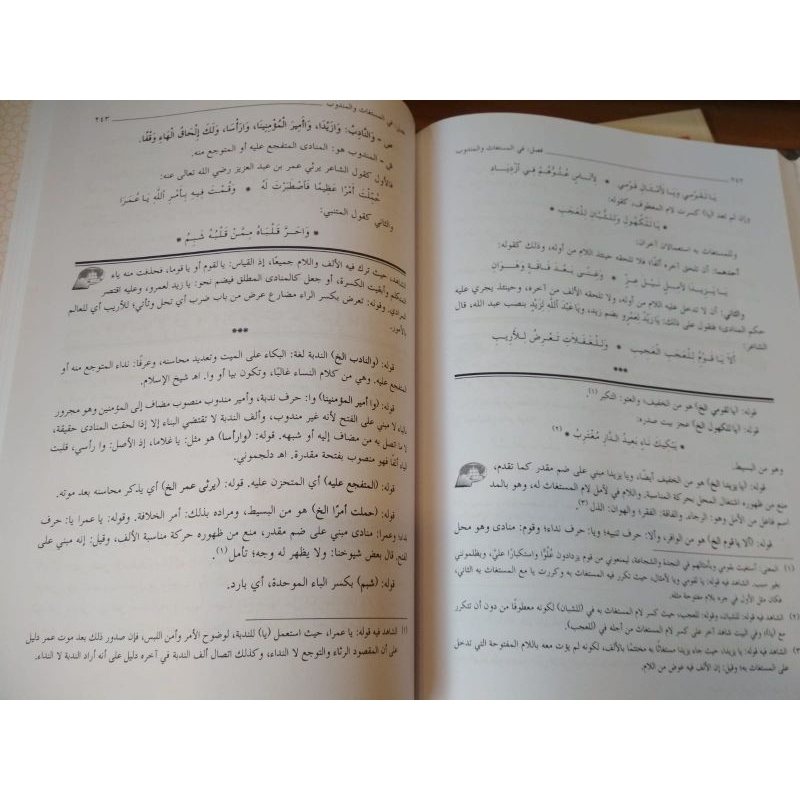 ٢٤٢ فصل: في المستغاث والمندوب
يَا لَقَوْمِي وَيَا لَأَمْثَالِ قَوْمِي * لِأُنَاسٍ عُتُوُّهُمْ فِي ازْدِيَادِ
وإن لم تعد (يا) كسرت لام المعطوف، كقوله:
* يَا لَلْكُهُولِ وَلِلشُّبَّانِ لِلْعَجَبِ *
وللمستغاث به استعمالان آخران:
أحدهما: أن تلحق آخره ألفًا؛ فلا تلحقه حينئذ اللام من أوله، وذلك كقوله:
يَا يَزِيدَا لِآمِلٍ نَيْلَ عِزٍّ * وَغِنًى بَعْدَ فَاقَةٍ وَهَوَانِ
والثاني: أن لا تدخل عليه اللام من أوله، ولا تلحقه الألف من آخره، وحينئذ يجري عليه
حكم المنادى؛ فتقول على ذلك: يَا زَيْدُ لِعَمْرٍو بضم زيد، ويَا عَبْدَ اللَّهِ لِزَيْدٍ بنصب عبد الله، قال
الشاعر:
أَلَا يَا قَوْمُ لِلْعَجَبِ الْعَجِيبِ * وَلِلْغَفَلَاتِ تَعْرِضُ لِلْأَرِيبِ
***
قوله: (يا لقومي الخ) هو من الخفيف؛ والعتو: التكبر (١).
قوله: (يا للكهول الخ) عجز بيت صدره:
* يَبْكِيكَ نَاءٍ بَعِيدُ الدَّارِ مُغْتَرِبٌ * (٢)
وهو من البسيط.
قوله: (يا يزيدا الخ) هو من الخفيف أيضًا، ويا يزيدا مبني على ضم مقدر كما تقدم،
منع من ظهوره اشتغال المحل بحركة المناسبة. واللام في لآمل لام المستغاث له، وهو بالمد
اسم فاعل من الأمل وهو: الرجاء. والفاقة: الفقر؛ والهوان: الذل (٣).
قوله: (ألا يا قوم الخ) هو من الوافر، وألا: حرف تنبيه؛ ويا: حرف نداء؛ وقوم: منادى وهو محل
(١) المعنى: أستغيث بقومي وبأمثالهم في النجدة والشجاعة، ليمنعوني من قوم يزدادون عُتُوًّا واستكبارًا عليَّ، ويظلموني
بغير سبب. الشاهد فيه قوله: يا لقومي ويا لأمثال، حيث تكرر فيه المستغاث به وكررت يا مع المستغاث به الثاني،
فكان مثل الأول في جره بلام مفتوحة مثله.
(٢) الشاهد فيه قوله: وللشبان، وقوله: للعجب، حيث كسر لام المستغاث به في (للشبان) لكونه معطوفًا من دون أن تتكرر
مع (يا)؛ وفي البيت شاهد آخر على كسر لام المستغاث من أجله في (للعجب).
٣) الشاهد فيه قوله: يا يزيدا، حيث جاء بيزيدا مستغاثًا به مختتمًا بالألف، لكونه لم يؤت معه باللام المفتوحة التي تدخل
على المستغاث به؛ وقيل: إن الألف فيه عوض من اللام.
فصل: في المستغاث والمندوب ٢٤٣
ص - وَالنَّادِبُ: وَازَيْدَا، وَاأَمِيرَ الْمُؤْمِنِينَا، وَارَأْسَا، وَلَكَ إِلْحَاقُ الْهَاءِ وَقْفًا.
ش - المندوب هو: المنادى المتفجع عليه أو المتوجع منه.
فالأول كقول الشاعر يرثي عمر بن عبد العزيز رضي الله تعالى عنه:
حُمِّلْتَ أَمْرًا عَظِيمًا فَاصْطَبَرْتَ لَهُ * وَقُمْتَ فِيهِ بِأَمْرِ اللَّهِ يَا عُمَرَا
والثاني كقول المتنبي:
* وَاحَرَّ قَلْبَاهُ مِمَّنْ قَلْبُهُ شَبِمُ *
الشاهد، حيث ترك فيه الألف واللام جميعًا، إذ القياس: يا لقوم أو يا قوما، فحذفت منه ياء
المتكلم وأبقيت الكسرة، أو جعل كالمنادى المطلق فيضم نحو: يا زيد لعمرو، وعليه اقتصر
المرادي. وقوله: تعرض بكسر الراء مضارع عرض من باب ضرب أي تحل وتأتي؛ للأريب أي للعالم
بالأمور.
***
قوله: (والنادب الخ) الندبة لغة: البكاء على الميت وتعديد محاسنه، وعرفًا: نداء المتوجع منه أو
المتفجع عليه. وهي من كلام النساء غالبًا، وتكون بيا أو وا. اهـ شيخ الإسلام.
قوله: (وا أمير المؤمنينا) وا: حرف ندبة، وأمير مندوب منصوب مضاف إلى المؤمنين وهو مجرور
بالياء لا مبني على الفتح لأنه غير مندوب، وألف الندبة لا تقتضي البناء إلا إذا لحقت المنادى حقيقة،
لا ما اتصل به من مضاف إليه أو شبهه. قوله: (وارأسا) هو مثل: يا غلاما، إذ الأصل: وا رأسي، قلبت
ياؤه ألفًا فهو منصوب بفتحة مقدرة. اهـ دلجموني.
قوله: (المتفجع عليه) أي المتحزن عليه. قوله: (يرثى عمر الخ) أي يذكر محاسنه بعد موته.
قوله: (حملت أمرًا الخ) هو من البسيط، ومراده بذلك: أمر الخلافة. وقوله: يا عمرا يا: حرف
نداء؛ وعمرا: منادى مبني على ضم مقدر، منع من ظهوره حركة مناسبة الألف، وقيل: إنه مبني على
الفتح. قال بعض شيوخنا: ولا يظهر له وجه؛ تأمل (١).
قوله: (شبم) بكسر الباء الموحدة، أي بارد.
(١) الشاهد فيه قوله: يا عمرا، حيث استعمل (يا) للندبة، لوضوح الأمر وأمن اللبس، فإن صدور ذلك بعد موت عمر دليل
على أن المقصود الرثاء والتوجع لا النداء، وكذلك اتصال ألف الندبة في آخره دليل على أنه أراد الندبة لا النداء.